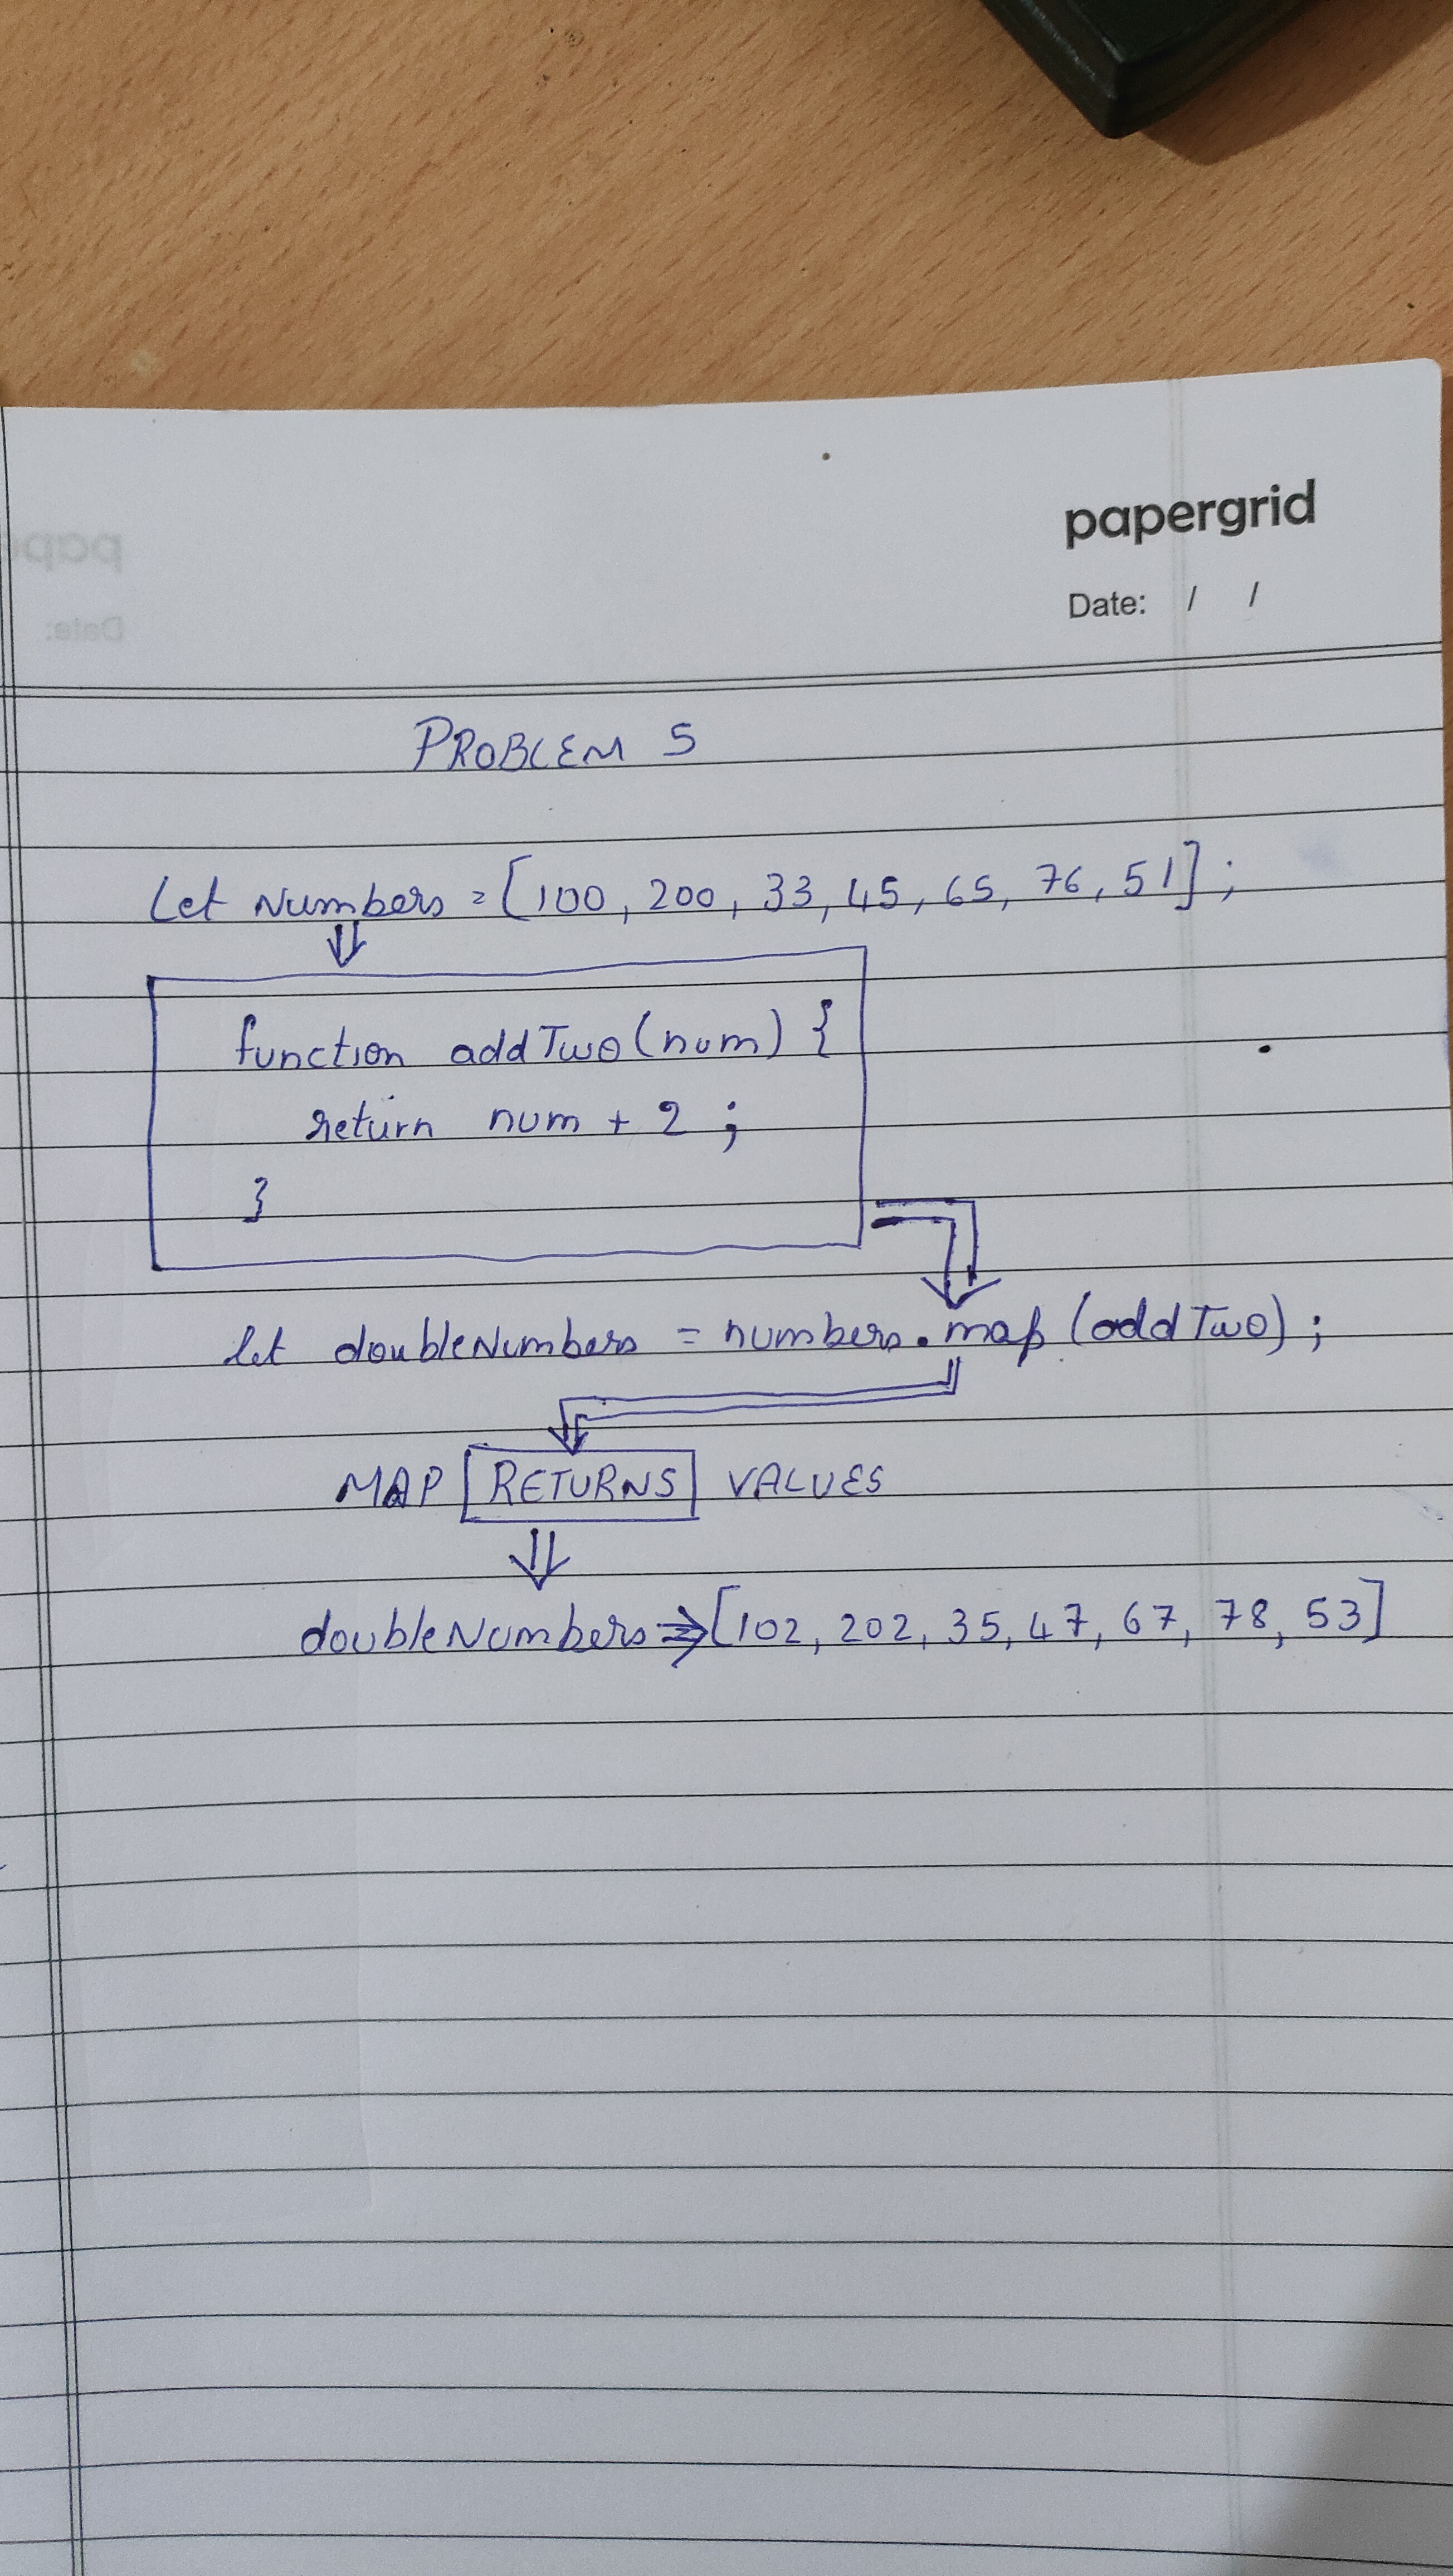 papergrid
Date: / /
PROBLEM 5
Let Numbers = [100, 200, 33, 45, 65, 76, 51];
⇓
function addTwo(num) {
return num + 2;
}
let doubleNumbers = numbers.map(addTwo);
MAP RETURNS VALUES
⇓
doubleNumbers ⇒ [102, 202, 35, 47, 67, 78, 53]